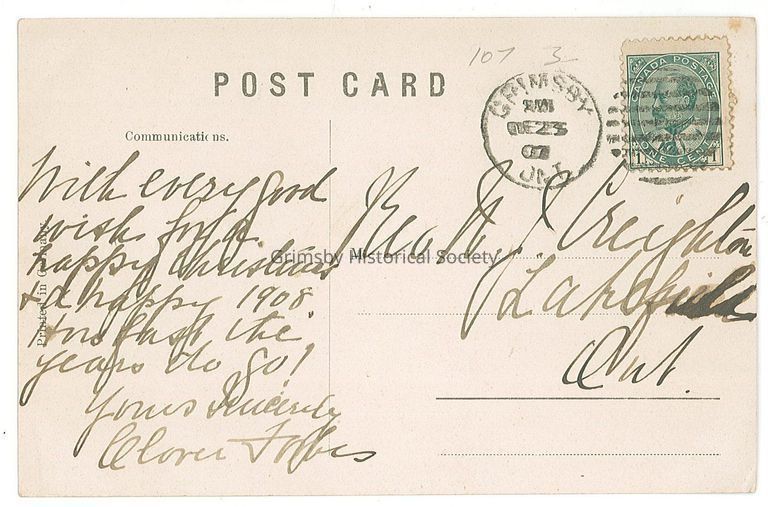 107 3
POST CARD
GRIMSBY
AM
DE 23
07
ONT
CANADA POSTAGE
1 ONE CENT 1
Communications.
With every good
wish for a
happy Christmas
& a happy 1908
how fast the
years do go!
Yours Sincerely
Clover Forbes
Printed in Germany.
Creighton
Lakefield
Ont.
Grimsby Historical Society